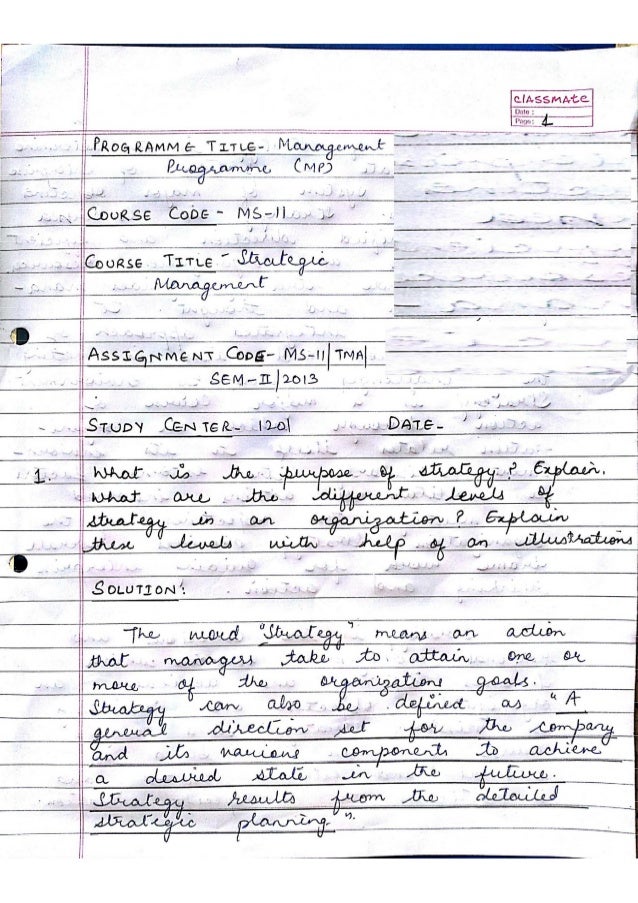 classmate
Date :
Page : 1
PROGRAMME TITLE- Management
Programme (MP)
COURSE CODE - MS-11
COURSE TITLE - Strategic
Management
ASSIGNMENT CODE- MS-11/TMA/
SEM-II/2013
STUDY CENTER- 1201 DATE-
1. What is the purpose of strategy? Explain.
What are the different levels of
strategy in an organization? Explain
these levels with help of an illustrations
SOLUTION:
The word "Strategy" means an action
that managers take to attain one or
more of the organizations goals.
Strategy can also be defined as "A
general direction set for the company
and its various components to achieve
a desired state in the future.
Strategy results from the detailed
strategic planning".